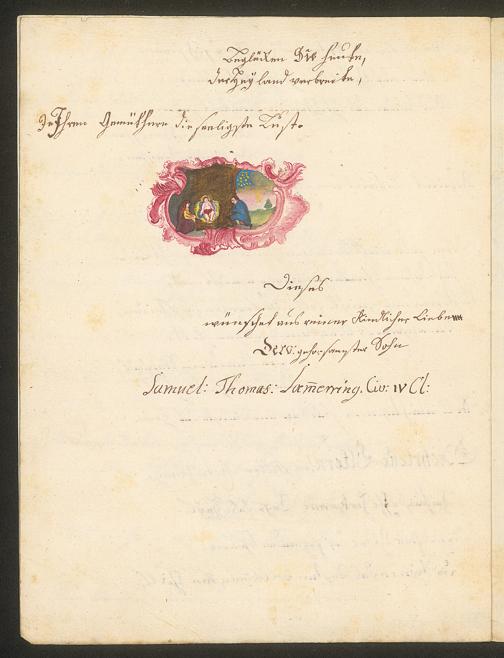 Beglücken Sie heute,
der Heyland verbreite,
In Ihren Gemüthern die seeligste Lust.
Dieses
wünschet aus reiner Kindlicher Liebe
Dero: gehorsamster Sohn
Samuel: Thomas: Sœm̅erring. Civ: IV Cl: